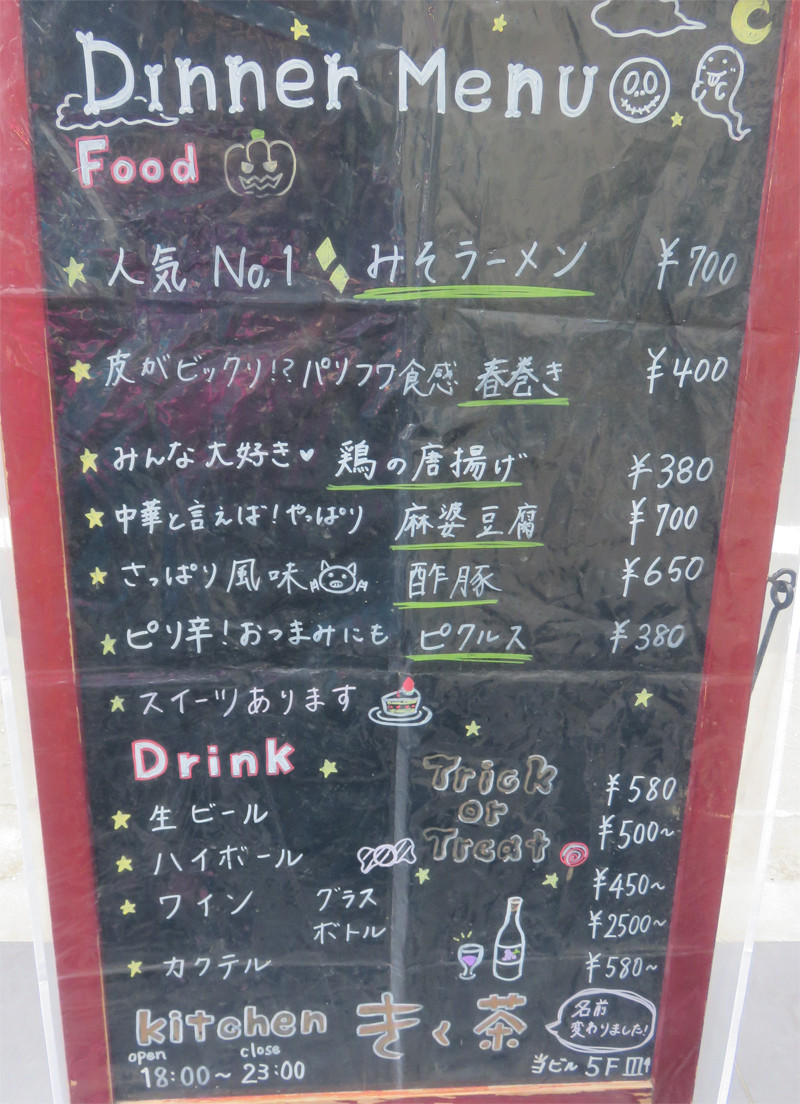 Dinner Menu
Food
人気 No.1 みそラーメン ¥700
皮がビックリ!? パリフワ食感 春巻き ¥400
みんな大好き♥ 鶏の唐揚げ ¥380
中華と言えば!やっぱり 麻婆豆腐 ¥700
さっぱり風味 酢豚 ¥650
ピリ辛!おつまみにも ピクルス ¥380
スイーツあります
Drink
Trick
or
Treat
生ビール ¥580
ハイボール ¥500~
ワイン グラス ¥450~
ボトル ¥2500~
カクテル ¥580~
kitchen きく茶
名前
変わりました!
open close
18:00~23:00
当ビル 5F